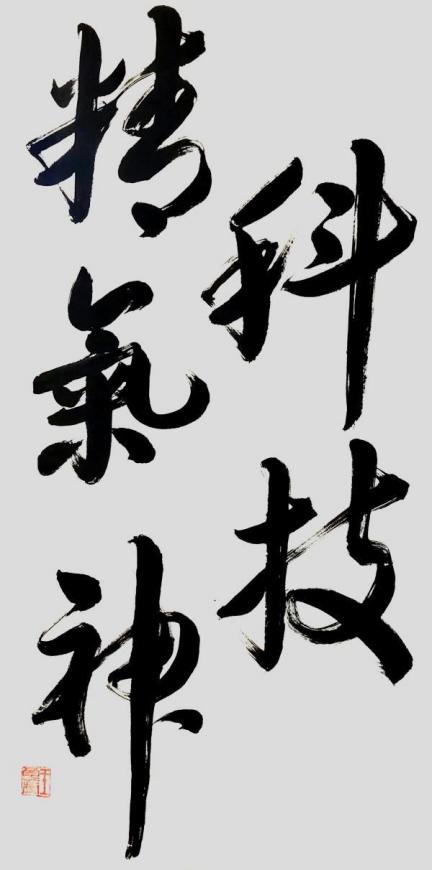 科技
精氣神